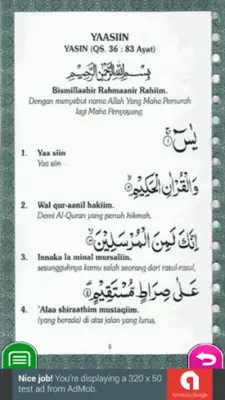 YAASIIN
YASIN (QS. 36 : 83 Ayat)
بِسْمِ اللهِ الرَّحْمٰنِ الرَّحِيْمِ
Bismillaahir Rahmaanir Rahiim.
Dengan menyebut nama Allah Yang Maha Pemurah
lagi Maha Penyayang.
يٰسۤ ۝١
1. Yaa siin
Yaa siin
وَالْقُرْاٰنِ الْحَكِيْمِ ۝٢
2. Wal qur-aanil hakiim.
Demi Al-Quran yang penuh hikmah.
اِنَّكَ لَمِنَ الْمُرْسَلِيْنَ ۝٣
3. Innaka la minal mursaliin.
sesungguhnya kamu salah seorang dari rasul-rasul,
عَلٰى صِرَاطٍ مُّسْتَقِيْمٍ ۝٤
4. 'Alaa shiraathim mustaqiim.
(yang berada) di atas jalan yang lurus,
Nice job! You're displaying a 320 x 50
test ad from AdMob.